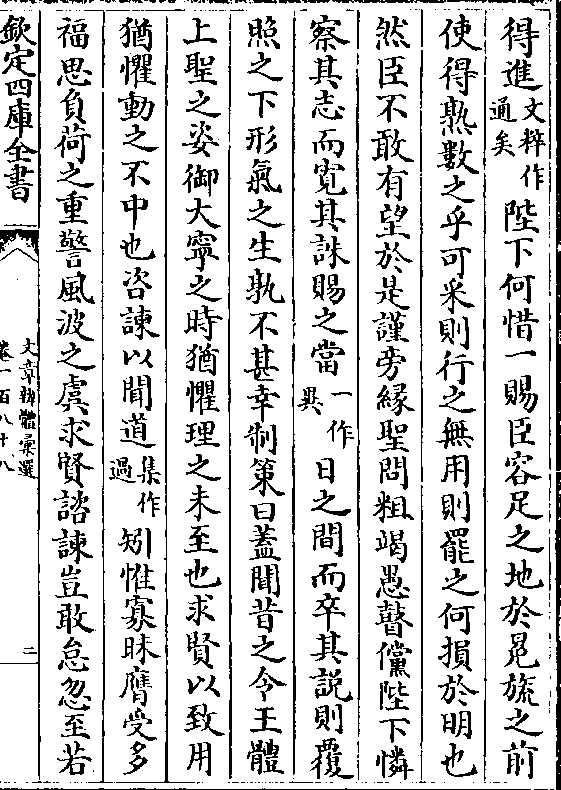 得進文粹作通矣陛下何惜一賜臣容足之地於冕旒之前
使得熟數之乎可采則行之無用則罷之何損於明也
然臣不敢有望於是謹旁緣聖問粗竭愚瞽儻陛下憐
察其志而寛其誅賜之當一作異日之間而卒其説則覆
照之下形氣之生孰不甚幸制策曰蓋聞昔之令王體
上聖之姿御大寧之時猶懼理之未至也求賢以致用
猶懼動之不中也咨諫以聞道集作過矧惟寡昧膺受多
福思負荷之重警風波之虞求賢諮諫豈敢怠忽至若
欽定四庫全書
文章辨體彙選
卷一百八十八
二